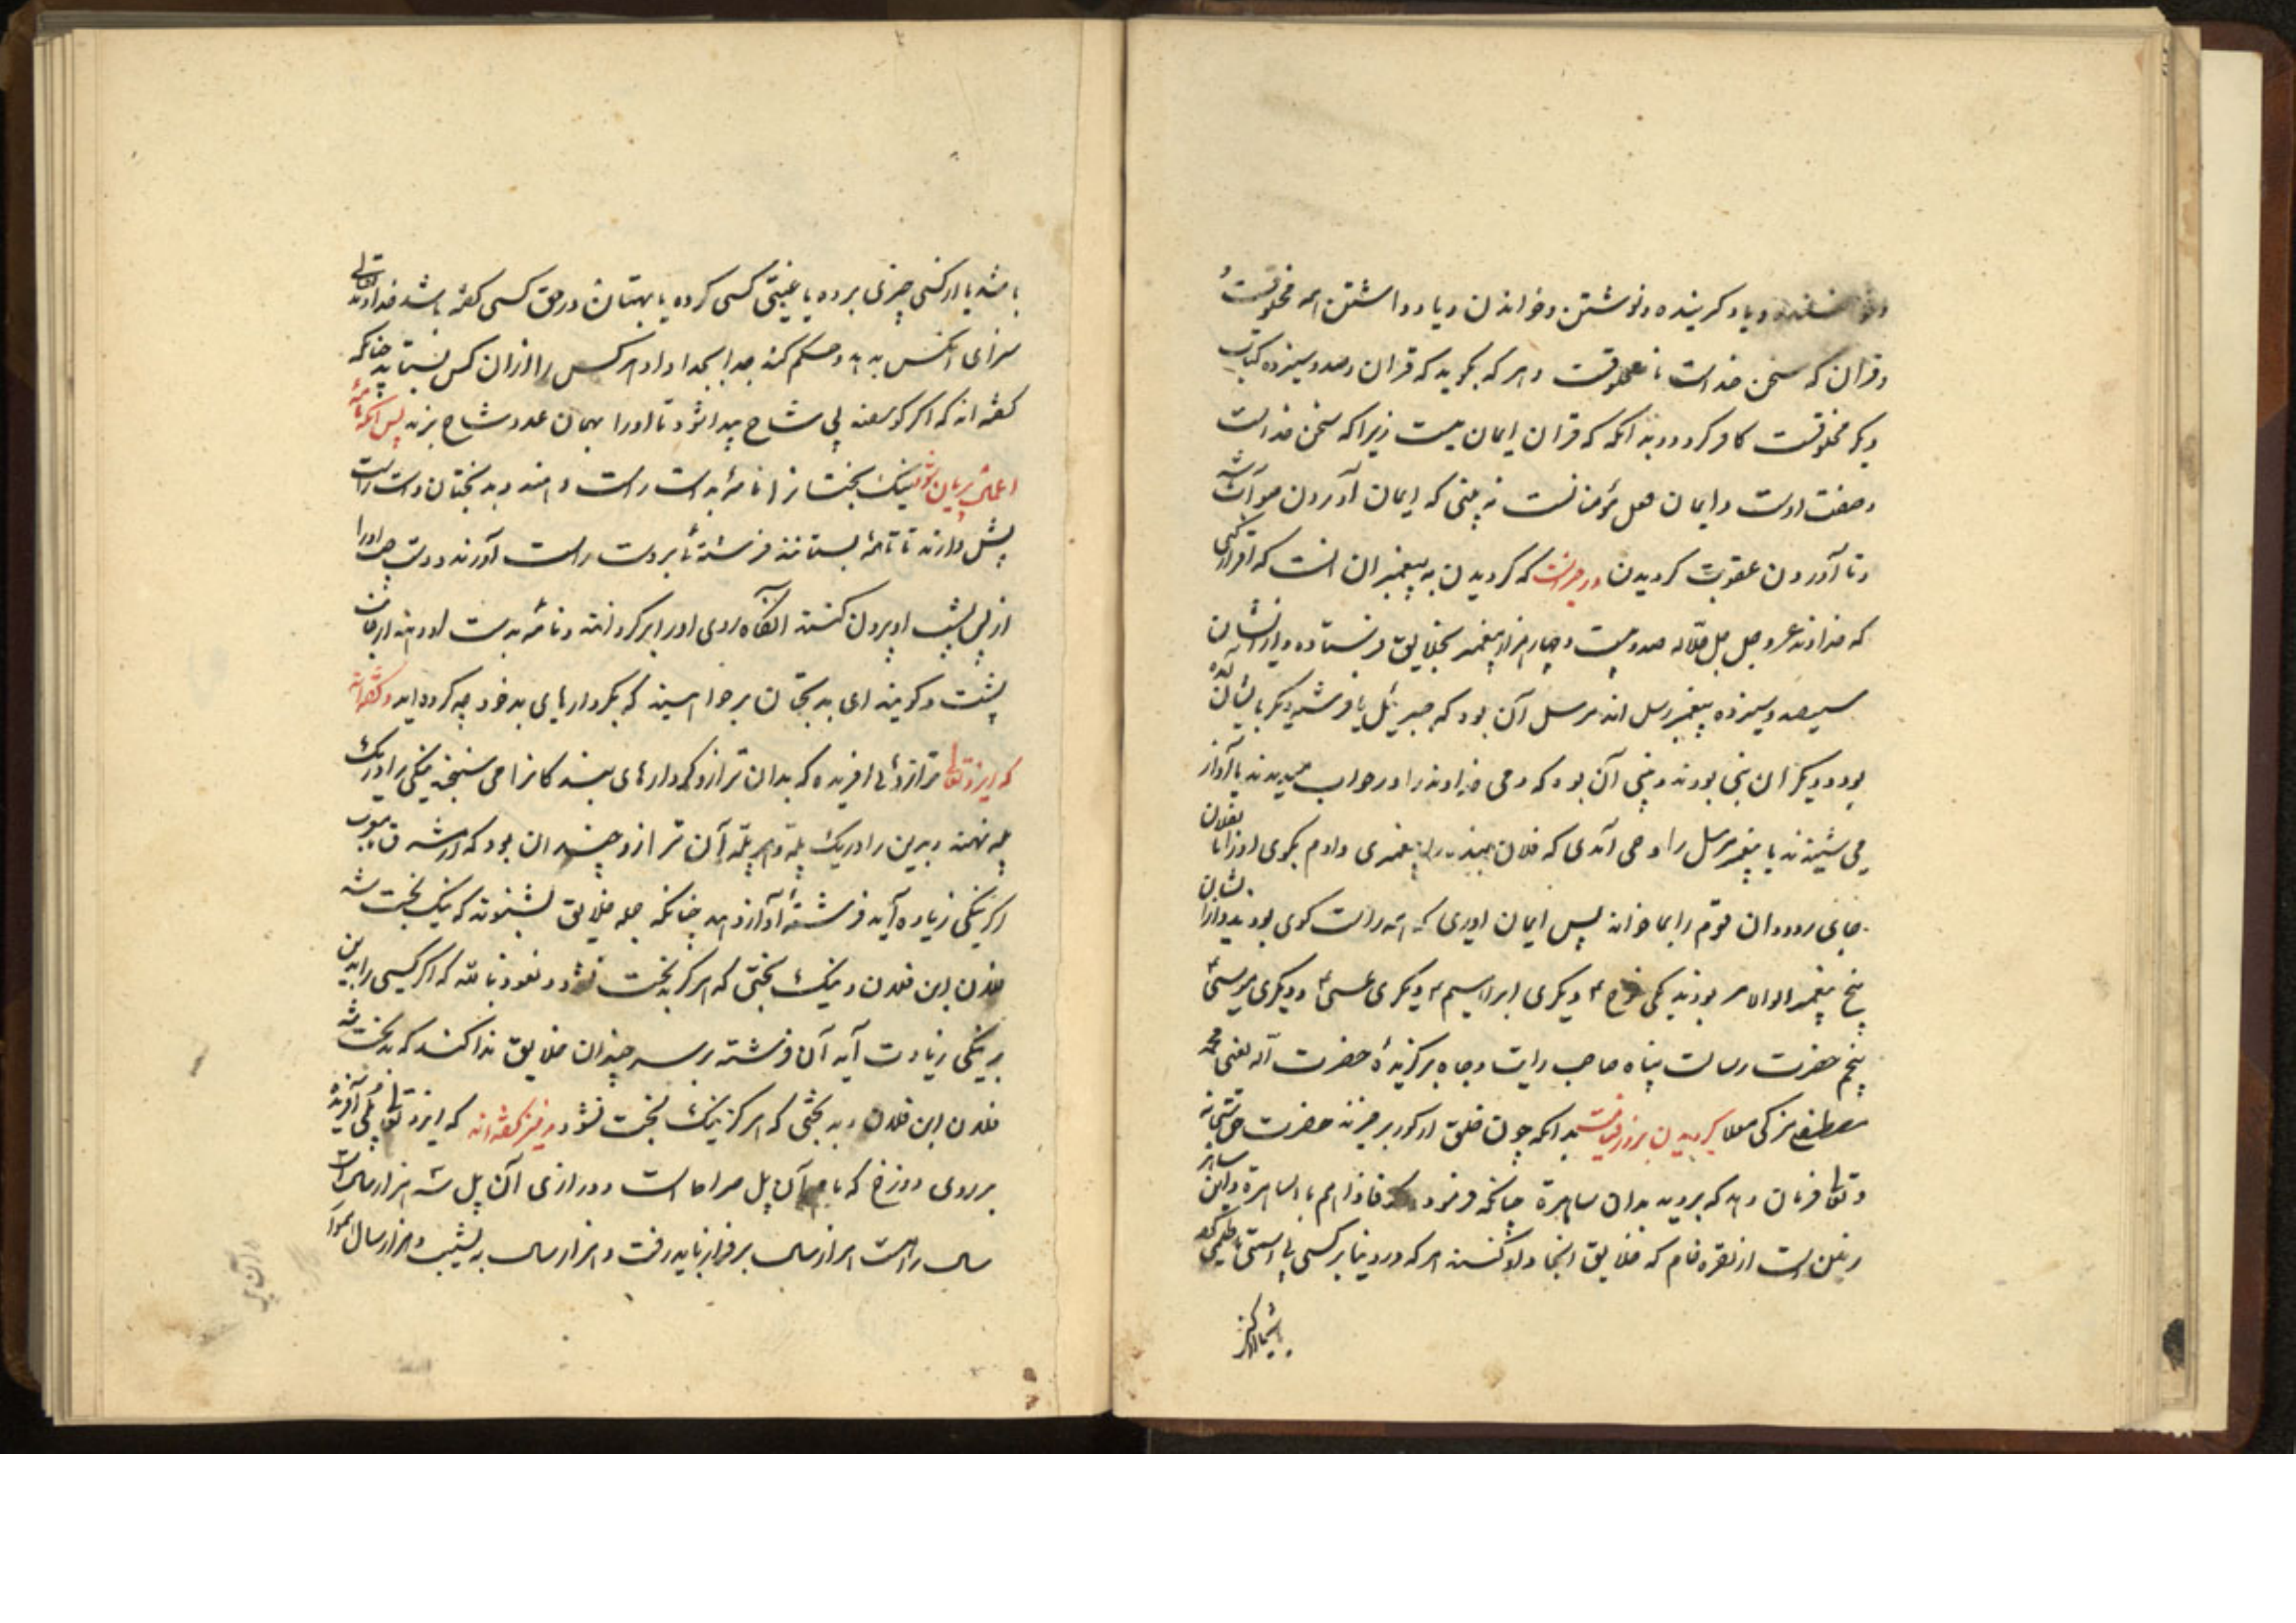 و یاد گرینده و نوشتن و خواندن و یاد داشتن این مخلوقست
و قران که سخن خداست نامخلوقست و هر که بگوید که قران و صد و سیزده کتاب
دیگر مخلوقست کافر گردد و بدانکه که قران ایمان نیست زیرا که سخن خداست
و صفت اوست و ایمان فعل مؤمنانست نه بینی که ایمان آوردن
و نا آوردن عقوبت گردیدن که گرویدن به پیغمبران انست که اقرار کنی
که خداوند عز و جل جل جلاله صد و بیست و چهار هزار پیغمبر بخلایق فرستاده و از ایشان
سیصد و سیزده پیغمبر مرسل اند مرسل آن بود که جبرئیل یا فرشته دیگر بایشان آمده
بود و دیگران نبی بودند و نبی آن بود که وحی خداوند را در خواب میدیدند یا آواز
می شنیدند یا پیغمبر مرسل را وحی آمدی که فلان بنده را پیغمبری دادم بگوی او را تا بفلان
جای رود و ان قوم را بما خواند پس ایمان اوری که همه راست گوی بودند و از ایشان
پنج پیغمبر اولوالامر بودند یکی نوح ۴ دیگری ابراهیم ۴ دیگری عیسی ۴ و دیگری موسی ۴
پنجم حضرت رسالت پناه صاحب رایت و جاه برگزیدهٔ حضرت آله یعنی محمد
مصطفی مزکی معلا گرویدن بروز قیامت بدانکه چون خلق از گور برخیزند حضرت حق سبحانه
و تعالی فرمان دهد که بروید بدان ساهرة چنانکه فرمود فاذاهم بالساهرة و این ساهره
زمین است از نقره خام که خلایق انجا هر که در دنیا بر کسی
باشد یا از کسی چیزی برده یا غیبتی کسی کرده یا بهتان در حق کسی گفته باشد خداوند تعالی
سزای انکس بدهد و حکم کند جدا بجدا و داد هر کس را از ان کس بستاند چنانکه
گفته اند که اگر گوسفند بی شاخ پیدا شود تا او را بهمان عدد شاخ بزند پس انکه نامهٔ
اعمال پران شود نیک بختانرا نامهٔ بدست راست دهند و بدبختان دست راست
پیش دارند تا نامه بستانند فرشتهٔ بر دست راست آورند و دست چپ او را
از پس پشت او بیرون کنند انگاه روی او را بر گردانند و نامه بدست او دهند از جانب
پشت و گویند ای بدبختان بر خوانید که بکردارهای بد خود چه کرده اید و گفته اند
که ایزد تعالی ترازوئی افریده که بدان ترازو کردارهای بندگانرا می سنجند نیکی را در یک
پله نهند و بدی را در یک پله و هر پلهٔ آن ترازو چندان بود که از مشرق تا مغرب
اگر نیکی زیاده آید فرشتهٔ آواز دهد چنانکه جمله خلایق بشنوند که نیک بخت شد
فلان ابن فلان و نیک بختی که هرگز بدبخت نشود و نعوذ بالله که اگر کسی را بدی
بر نیکی زیادت آید آن فرشته بر سر چندان خلایق ندا کند که بدبخت شد
فلان ابن فلان و بدبختی که هرگز نیک بخت نشود و نیز گفته اند که ایزد تعالی پلی آفریده
بر روی دوزخ که نام آن پل صراط است و درازی آن پل سه هزار سال راهست
سال راهست هزار سال بر فراز باید رفت و هزار سال به نشیب و هزار سال هموار